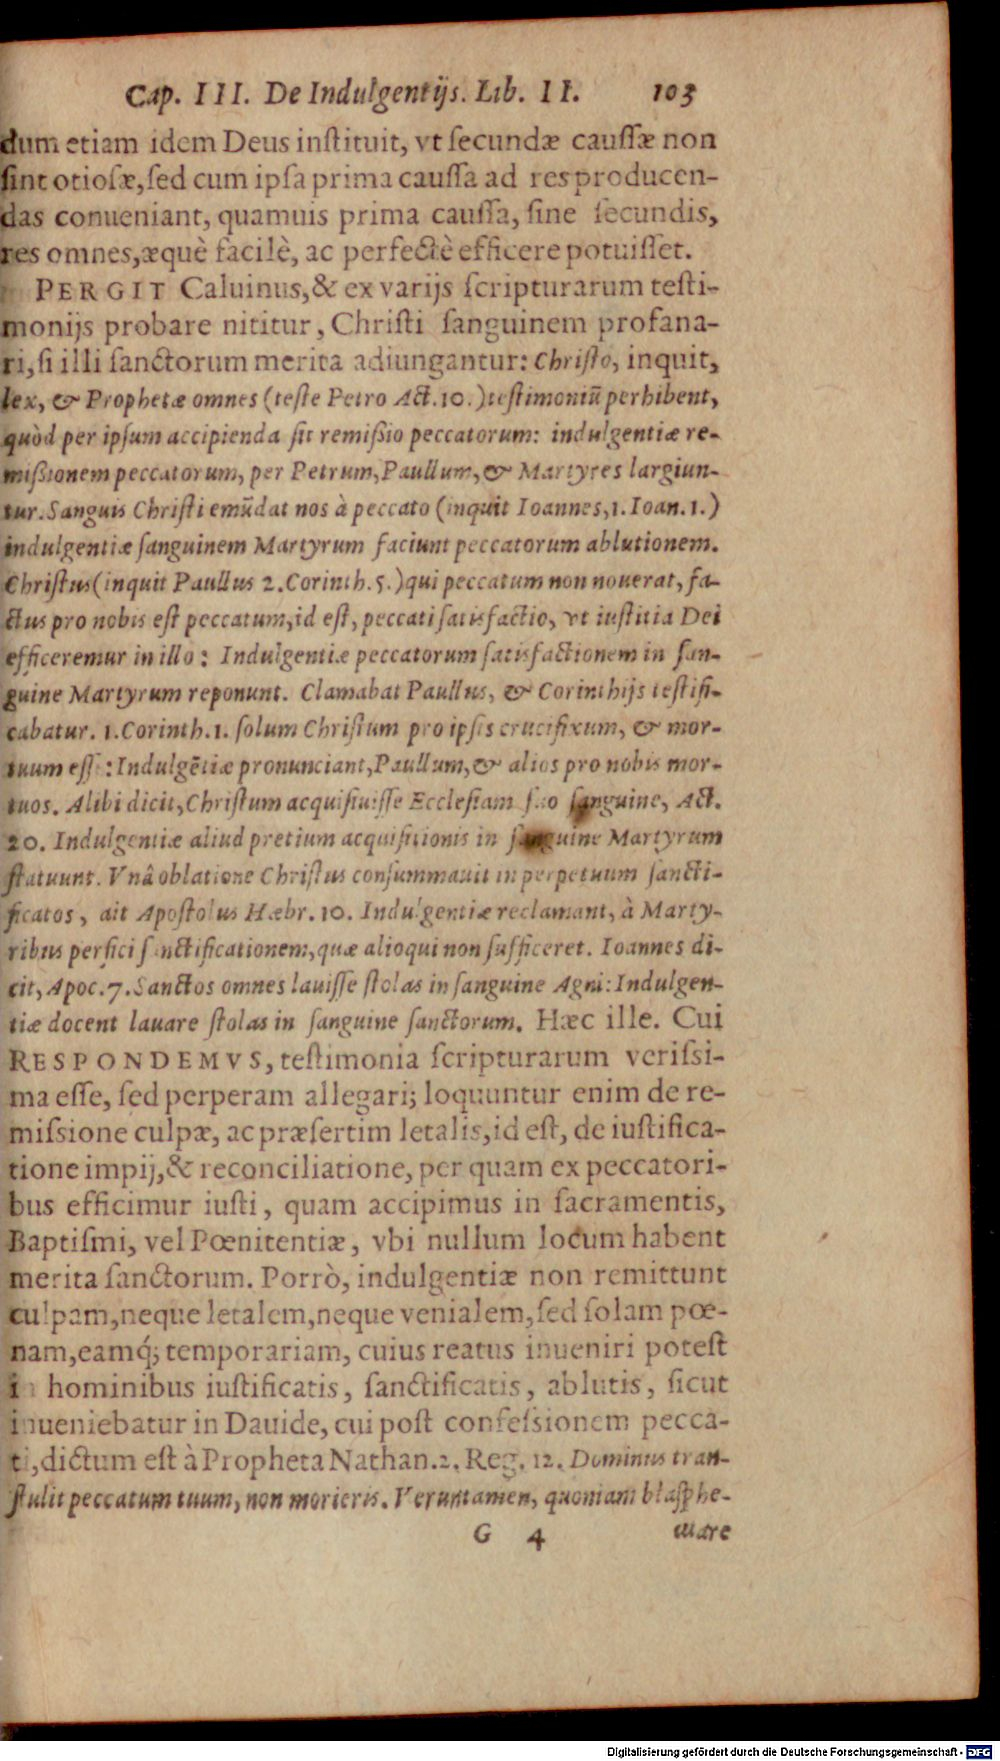 Cap. III. De Indulgentijs. Lib. II. 103
dum etiam idem Deus instituit, vt secundæ caussæ non
sint otiosæ, sed cum ipsa prima caussa ad res producen-
das conueniant, quamuis prima caussa, sine secundis,
res omnes, æquè facilè, ac perfectè efficere potuisset.
PERGIT Caluinus, & ex varijs scripturarum testi-
monijs probare nititur, Christi sanguinem profana-
ri, si illi sanctorum merita adiungantur: Christo, inquit,
lex, & Prophetæ omnes (teste Petro Act. 10.) testimoniũ perhibent,
quòd per ipsum accipienda sit remißio peccatorum: indulgentiæ re-
mißionem peccatorum, per Petrum, Paullum, & Martyres largiun-
tur. Sanguis Christi emũdat nos à peccato (inquit Ioannes, 1. Ioan. 1.)
indulgentiæ sanguinem Martyrum faciunt peccatorum ablutionem.
Christus (inquit Paullus 2. Corinth. 5.) qui peccatum non nouerat, fa-
ctus pro nobis est peccatum, id est, peccati satisfactio, vt iustitia Dei
efficeremur in illo: Indulgentiæ peccatorum satisfactionem in san-
guine Martyrum reponunt. Clamabat Paullus, & Corinthijs testifi-
cabatur. 1. Corinth. 1. solum Christum pro ipsis crucifixum, & mor-
tuum esse: Indulgẽtiæ pronunciant, Paullum, & alios pro nobis mor-
tuos. Alibi dicit, Christum acquisiuisse Ecclesiam suo sanguine, Act.
20. Indulgentiæ aliud pretium acquisitionis in sanguine Martyrum
statuunt. Vnâ oblatione Christus consummauit in perpetuum sancti-
ficatos, ait Apostolus Hæbr. 10. Indulgentiæ reclamant, à Marty-
ribus perfici sanctificationem, quæ alioqui non sufficeret. Ioannes di-
cit, Apoc. 7. Sanctos omnes lauisse stolas in sanguine Agni: Indulgen-
tiæ docent lauare stolas in sanguine sanctorum. Hæc ille. Cui
RESPONDEMVS, testimonia scripturarum verissi-
ma esse, sed perperam allegari; loquuntur enim de re-
missione culpæ, ac præsertim letalis, id est, de iustifica-
tione impij, & reconciliatione, per quam ex peccatori-
bus efficimur iusti, quam accipimus in sacramentis,
Baptismi, vel Pœnitentiæ, vbi nullum locum habent
merita sanctorum. Porrò, indulgentiæ non remittunt
culpam, neque letalem, neque venialem, sed solam pœ-
nam, eamq́; temporariam, cuius reatus inueniri potest
in hominibus iustificatis, sanctificatis, ablutis, sicut
inueniebatur in Dauide, cui post confessionem pecca-
ti, dictum est à Propheta Nathan. 2. Reg. 12. Dominus tran-
stulit peccatum tuum, non morieris. Veruntamen, quoniam blasphe-
G 4 mare
Digitalisierung gefördert durch die Deutsche Forschungsgemeinschaft - DFG